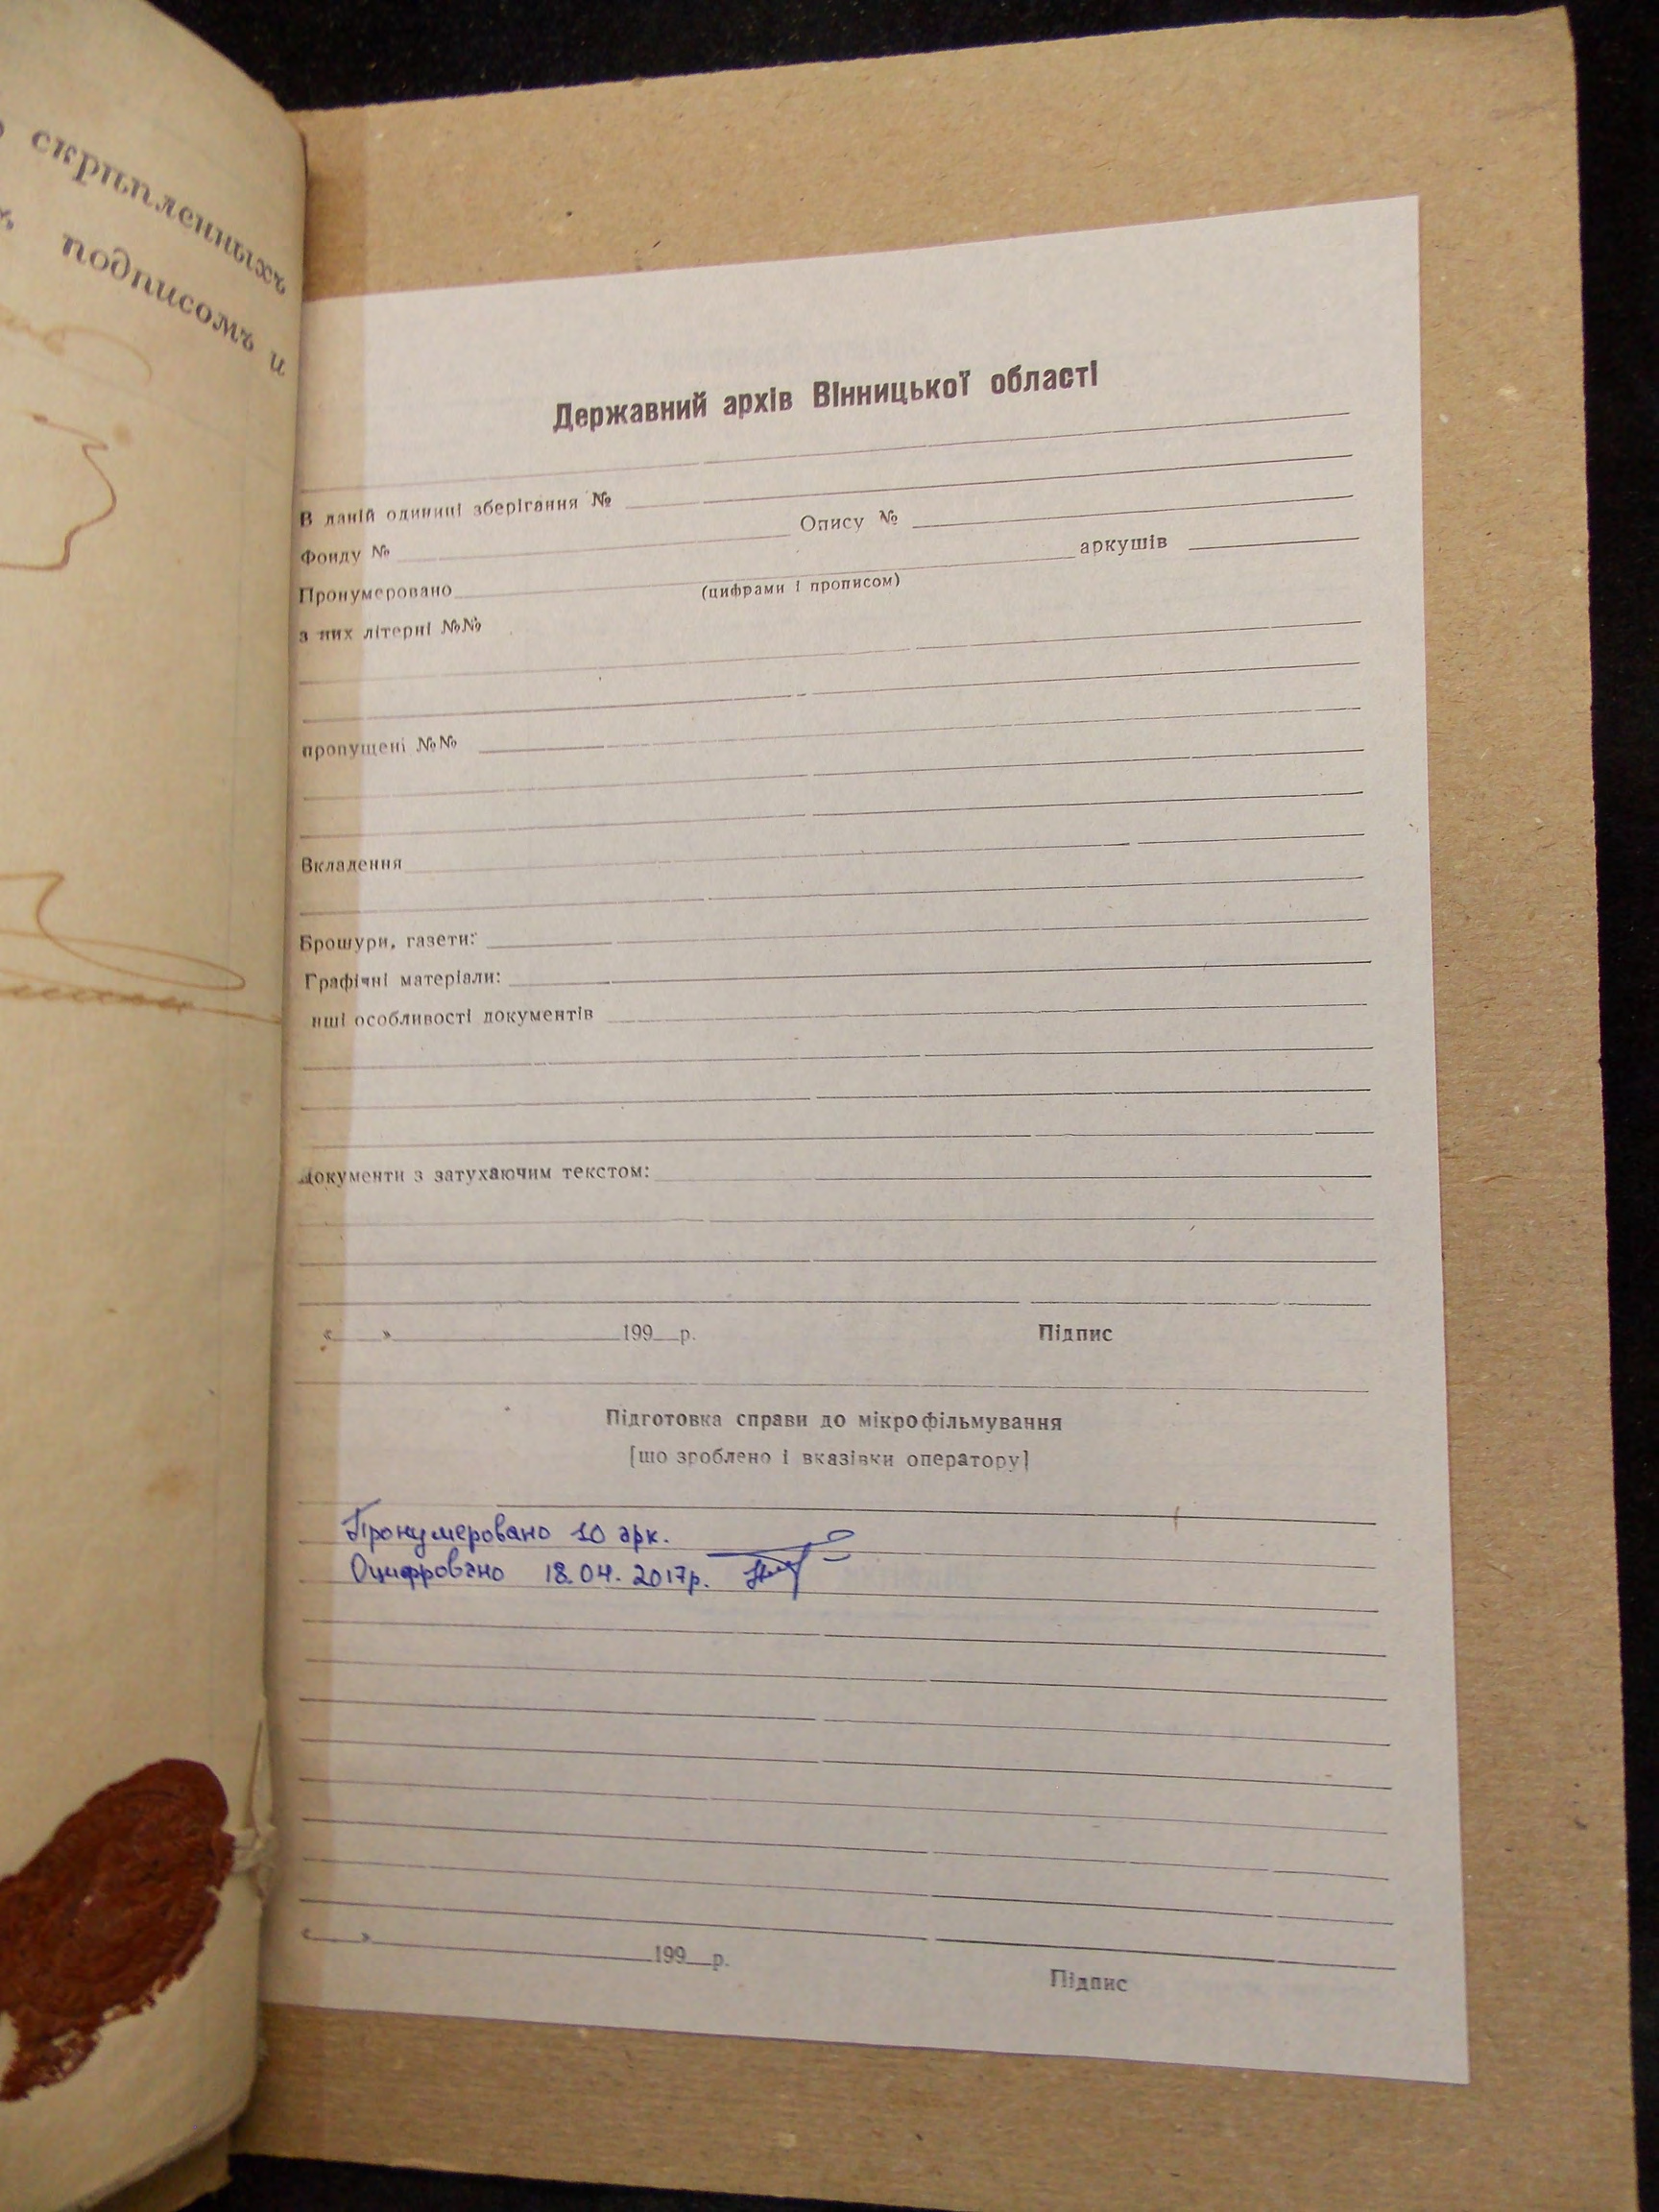 скрѣпленныхъ
подписомъ и
Державний архів Вінницької області
В даній одиниці зберігання №
Фонду № Опису №
Пронумеровано аркушів
(цифрами і прописом)
з них літерні №№
пропущені №№
Вкладення
Брошури, газети:
Графічні матеріали:
нші особливості документів
документи з затухаючим текстом:
« » 199 р. Підпис
Підготовка справи до мікрофільмування
[що зроблено і вказівки оператору]
Пронумеровано 10 арк.
Оцифровано 18.04.2017р.
« » 199 р.
Підпис